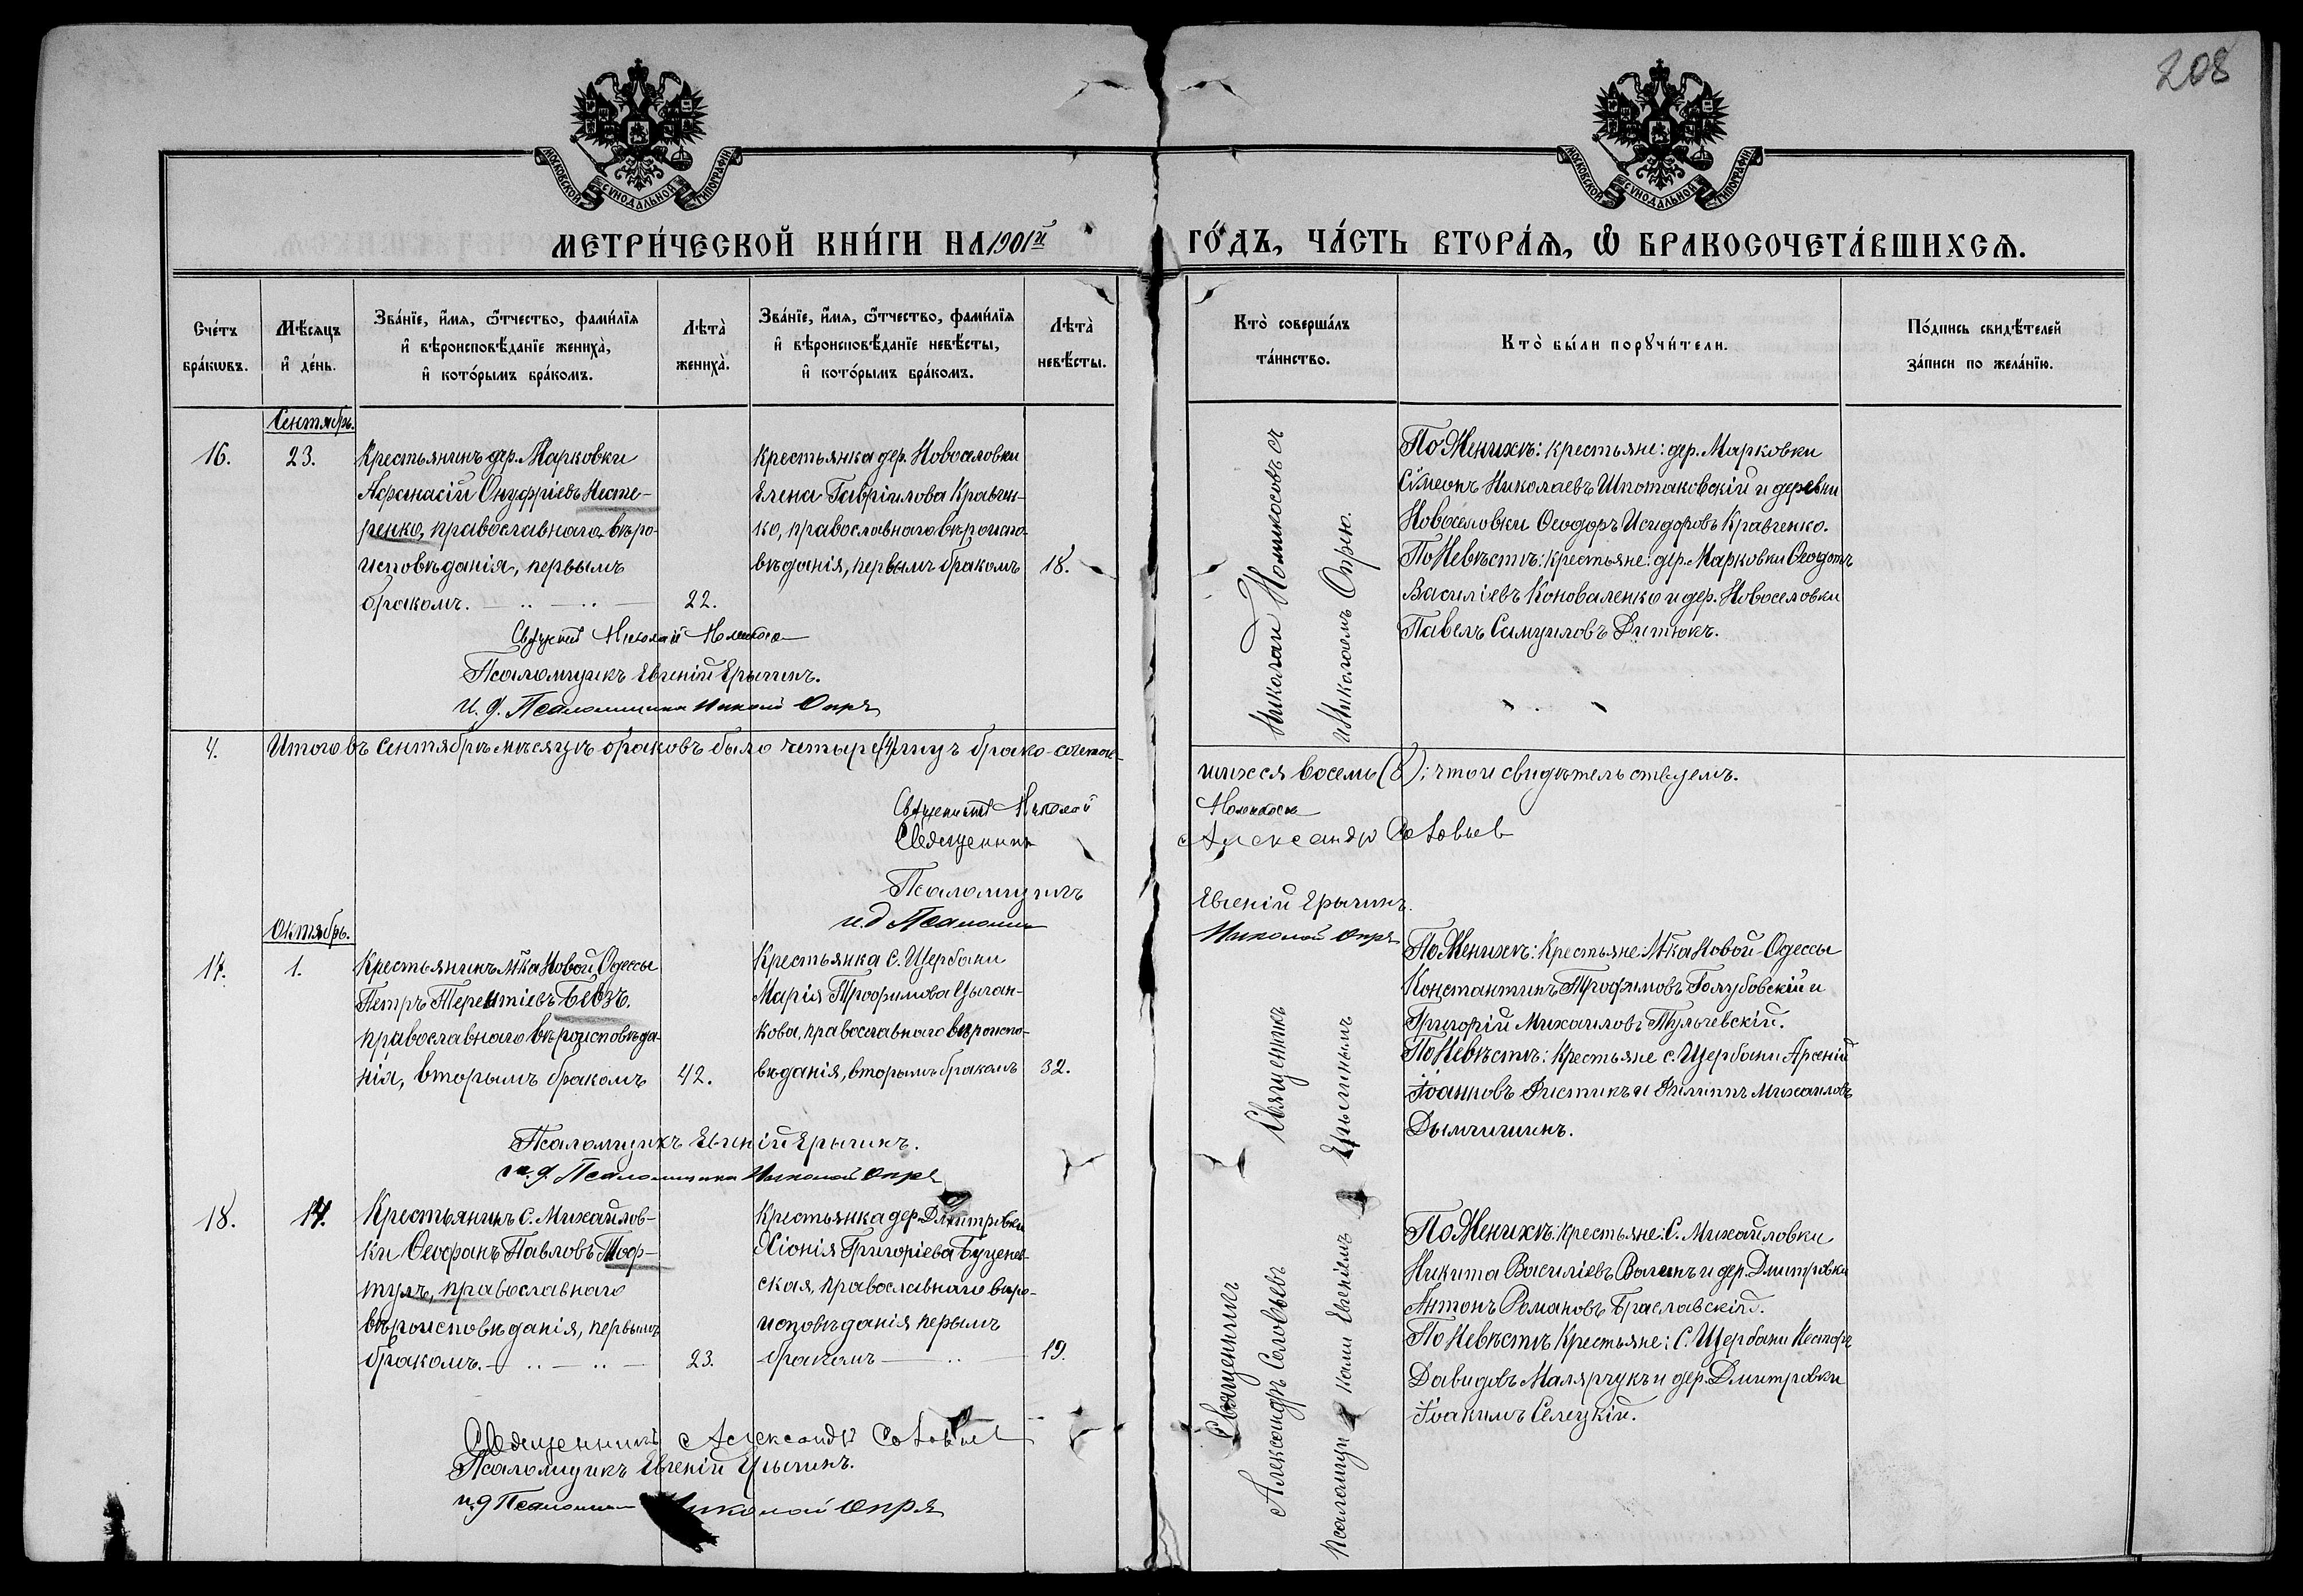 208
МОСКОВСКОЙ СѴНОДАЛЬНОЙ ТИПОГРАФІИ.
МОСКОВСКОЙ СѴНОДАЛЬНОЙ ТИПОГРАФІИ.
МЕТРИ́ЧЕСКОЙ КНИ́ГИ НА 1901й ГО́ДЪ, ЧА́СТЬ ВТОРА́Я, Ѡ БРАКОСОЧЕТА́ВШИХСЯ.
Сче́тъ
бра́кωвъ.
Мѣ́сяцъ
и҆ де́нь.
Зва́нїе, и҆́мя, ѻ҆́тчество, фами́лїя
и҆ вѣроисповѣ́данїе жениха̀,
и҆ кото́рымъ бра́комъ.
Лѣта̀
жениха̀.
Зва́нїе, и҆́мя, ѻ҆́тчество, фами́лїя
и҆ вѣроисповѣ́данїе невѣ́сты,
и҆ кото́рымъ бра́комъ.
Лѣта̀
невѣ́сты.
Кто̀ соверша́лъ
та́инство.
Кто̀ бы́ли порꙋчи́тели.
По́дпись свидѣ́телей
за́писи по жела́нїю.
Сентябрь.
16.
23.
Крестьянинъ дер. Марковки
Афанасій Онуфріевъ Несте-
ренко, православнаго вѣро-
исповѣданія, первымъ
бракомъ.
22.
Крестьянка дер. Новоселовки
Елена Гавріилова Кравчен-
ко, православнаго вѣроиспо-
вѣданія, первымъ бракомъ
18.
Николай
Николаемъ Опрею.
По Женихѣ: крестьяне: дер. Марковки
Сѵмеонъ Николаевъ Шпотаковскій и деревни
Новоселовки Ѳеодоръ Исидоровъ Кравченко.
По Невѣстѣ: крестьяне: дер. Марковки Ѳеодотъ
Василіевъ Коноваленко и дер. Новоселовки
Павелъ Самуиловъ Дитюкъ.
Николай
Псаломщикъ Евгеній Ерыгинъ.
И. д. Псаломщика Николай Опря
4.
Итого въ Сентябрѣ мѣсяцѣ браковъ было четыре (4) лицъ брако-сочетав-
шихся восемь (8); что и свидѣтельствуемъ.
Священникъ Николай
Священникъ Александр Соловьев
Псаломщикъ Евгеній Ерыгинъ.
и.д Псаломщ Николай Опря
Октябрь.
17.
1.
Крестьянинъ м-ка Новой Одессы
Петръ Терентіевъ Бевзъ.
православнаго вѣроисповѣда-
нія, вторымъ бракомъ
42.
Крестьянка с. Щербани
Марія Трофимова Цыган-
кова, православнаго вѣроиспо-
вѣданія, вторымъ бракомъ
32.
По Женихѣ: Крестьяне М-ка Новой-Одессы
Константинъ Трофимовъ Голубовскій и
Григорій Михаиловъ Тульчевскій.
По Невѣстѣ: Крестьяне с. Щербани Арсеній
Іоанновъ Фистикъ и Филиппъ Михаиловъ
Псаломщикъ Евгеній Ерыгинъ.
и. д. Псаломщика Николай Опря
18.
14.
Крестьянинъ с. Михайлов-
ки Ѳеофанъ Павловъ Моор-
тулъ, православнаго
вѣроисповѣданія, первымъ
бракомъ.
23.
Крестьянка дер. Дмитровки
Хіонія Григоріева Буценев-
ская, православнаго вѣро-
исповѣданія первымъ
бракомъ
19.
Священникъ
Александръ Соловьевъ
Священникъ
Псаломщикомъ Евгеніемъ Ерыгинымъ
По Женихѣ: крестьяне: С. Михайловки
Никита Василіевъ Волынъ и дер. Дмитровки
Антонъ Романовъ Браславскій.
По Невѣстѣ Крестьяне: С. Щербани Несторъ
Давидовъ Малярчукъ и дер. Дмитровки
Іоакимъ Селецкій.
Священникъ Александръ Соловьев
Псаломщикъ Евгеній Ерыгинъ.
и.д Псаломщ Николай Опря